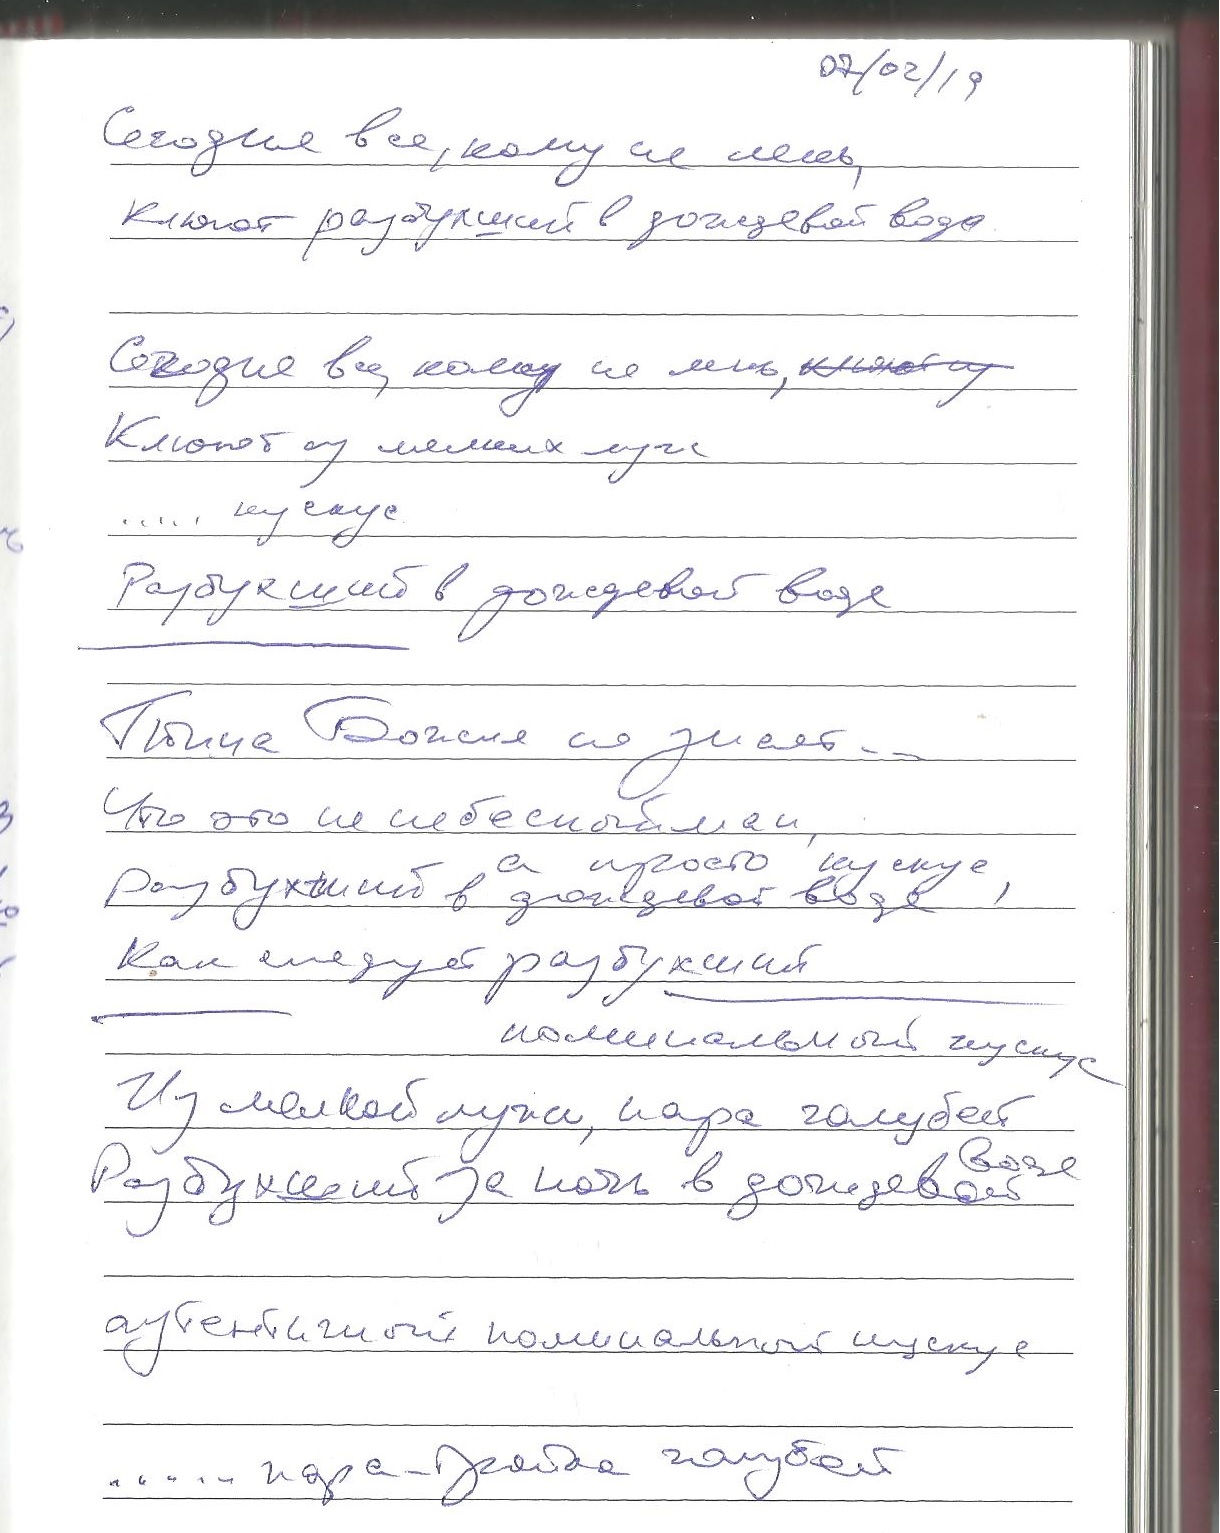 07/02/19
Сегодня все, кому не лень,
клюют разбухший в дождевой воде
Сегодня все, кому не лень,
Клюют из мелких луж
..... кускус
Разбухший в дождевой воде
Птица Божия не знает...
Что это не небесный ман,
а просто кускус,
разбухший в дождевой воде
Как следует разбухший
поминальный кускус
Из мелкой лужи, пара голубей
Разбухший за ночь в дождевой воде
аутентичный поминальный кускус
...... пара-тройка голубей